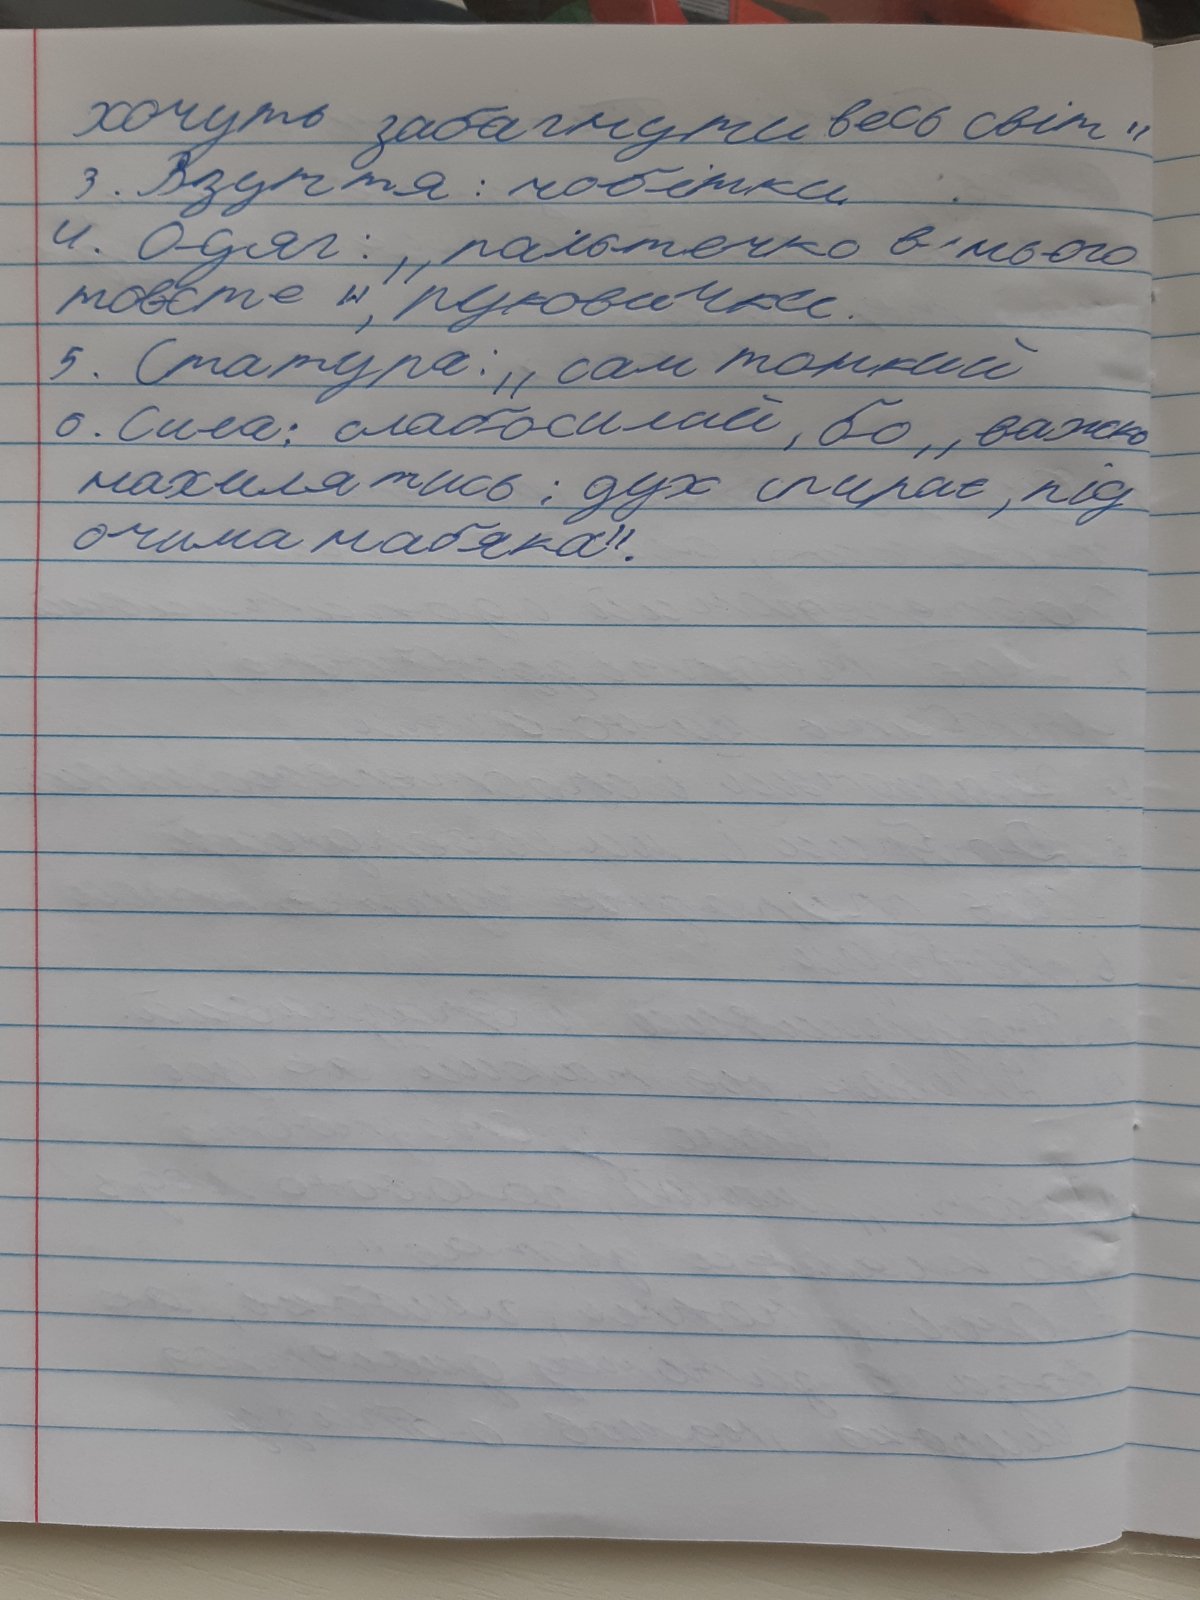 хочуть забагнути весь світ"
3. Взуття: чобітки.
4. Одяг: ,,пальтечко в нього
товсте", руковички.
5. Статура: ,,сам тонкий
6. Сила: слабосилий, бо ,,важко
нахилятись: дух спирає, під
очима набяка".